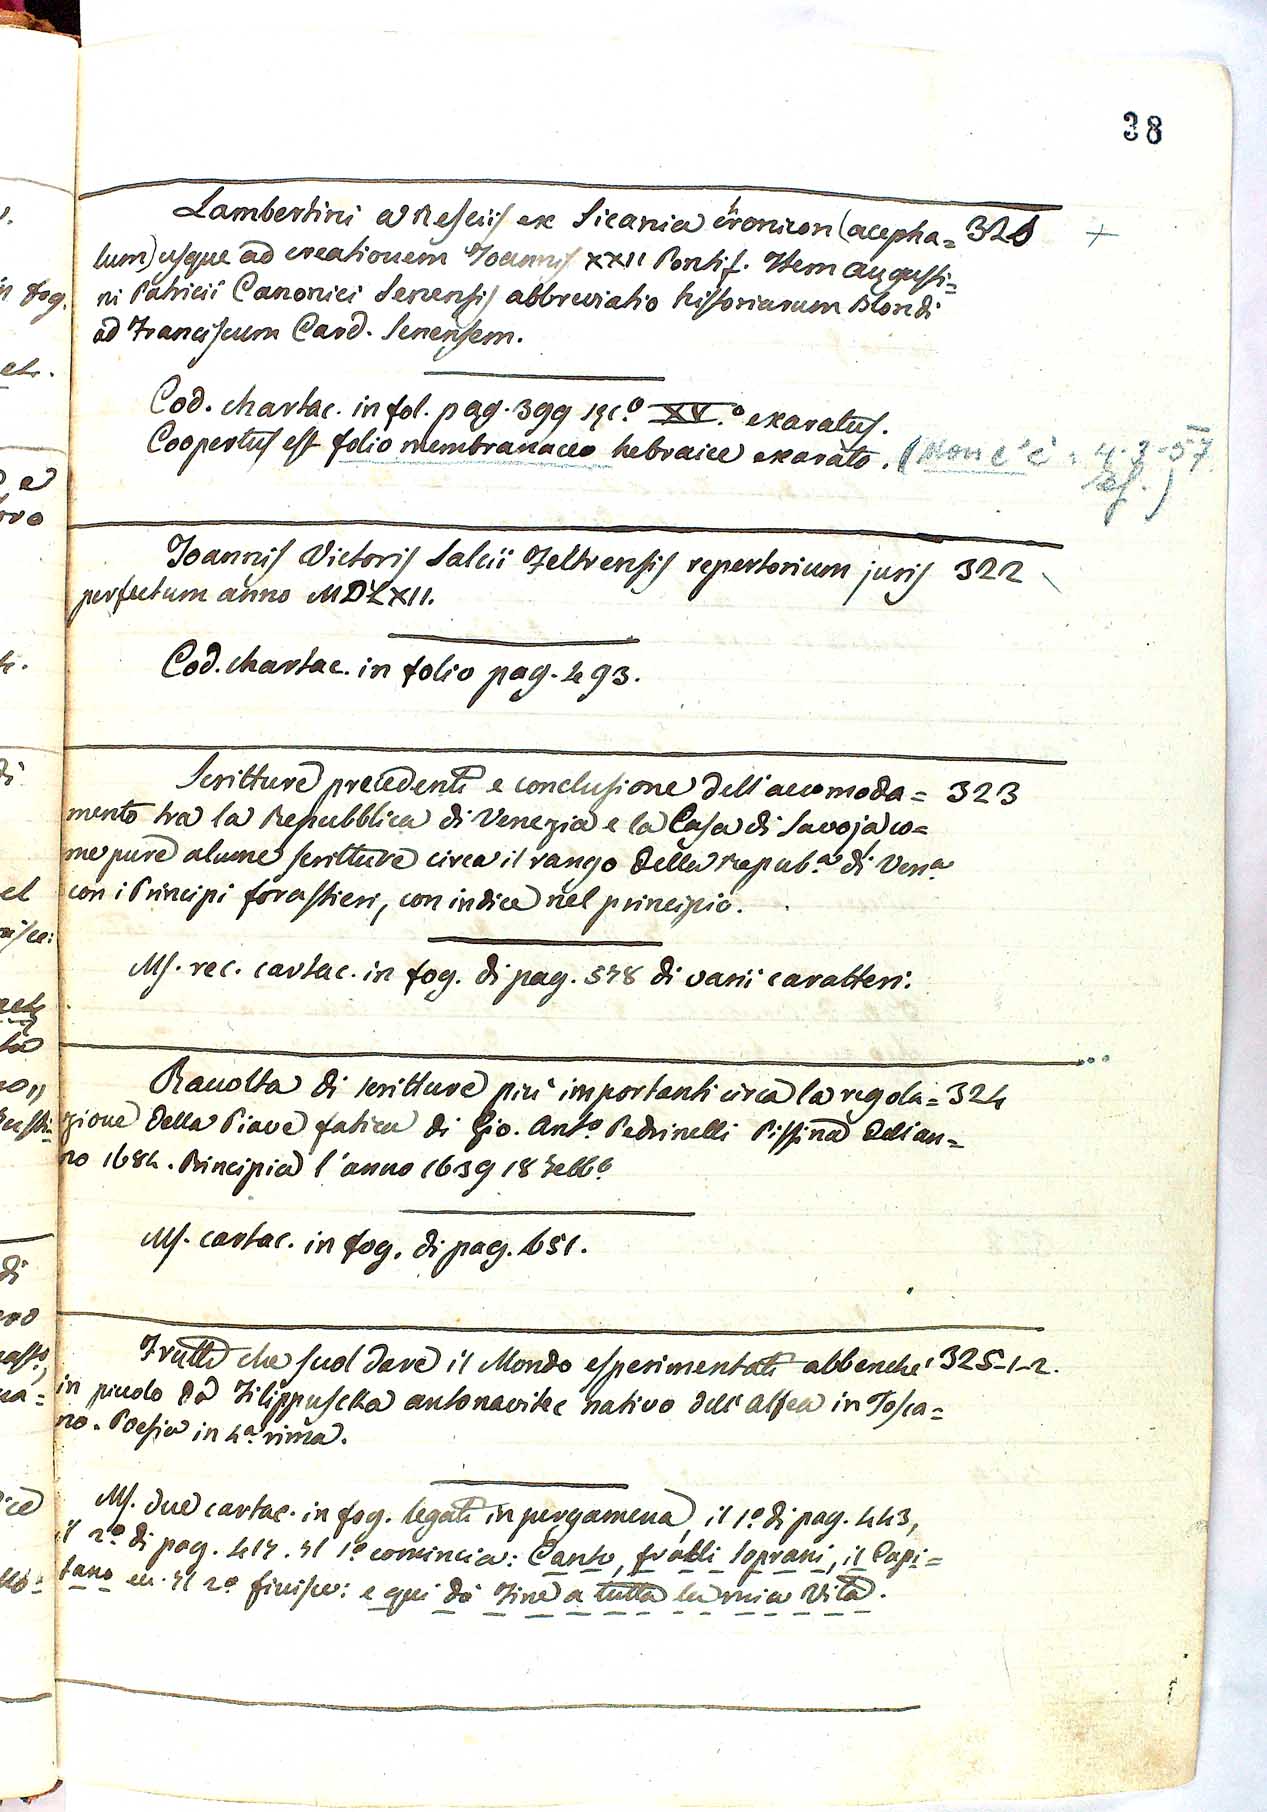 38
Lambertini a Resciis ex Sicania Cronicon (acepha= 321 +
lum) usque ad creationem Joannis XXII Pontif. Item Augusti=
ni Patricii Canonici Senensis abbreviatio historiarum Blondi
ad Franciscum Card. Senensem.
Cod. chartac. in fol. pag. 399 XV.º exaratus.
Coopertus est folio membranaceo hebraice exarato. (Non c'è 4-3-57
Joannis Victoris Salcii Feltrensis repertorium juris 322
perfectum anno MDLXII.
Cod. chartac. in folio pag. 493.
Scritture precedenti e conclusione dell'accomoda= 323
mento tra la Repubblica di Venezia e la Casa di Savoja co=
me pure alcune scritture circa il rango della Repub.a di Ven.a
con i Principi forastieri, con indice nel principio.
Ms. rec. cartac. in fog. di pag. 578 di varii caratteri.
Raccolta di scritture più importanti circa la regola= 324
zione della Piave fatica di Gio. Ant.o Pedrinelli Pissina dell'an=
no 1684. Principia l'anno 1639 18 Febb.o
Ms. cartac. in fog. di pag. 651.
Frutti che suol dare il Mondo esperimentati abbenche' 325-1-2.
in piccolo da Filippuscka antonavitec nativo dell'Alfea in Tosca=
no. Poesia in 4a rima.
Ms. due cartac. in fog. legati in pergamena, il 1.o di pag. 443,
il 2.o di pag. 417. Il 1.o comincia: Canto, fratelli Soprani, il Capi=
tano ec. Il 2.o finisce: e qui dò Fine a tutta la mia Vita.